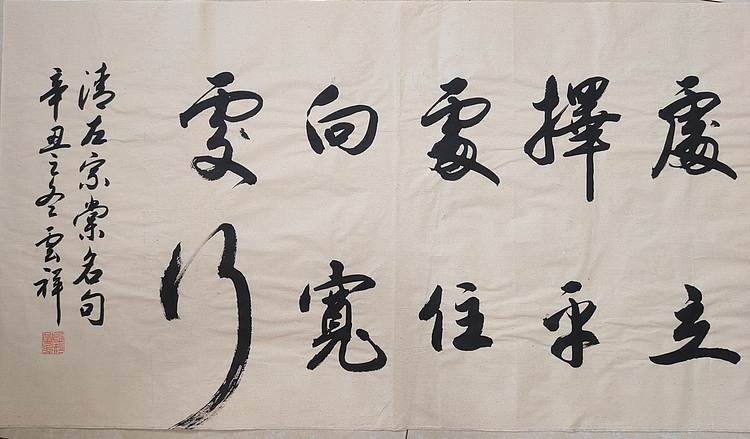 處立
擇平
處住
向寬
處行
清左宗棠名句
辛丑之冬雲祥